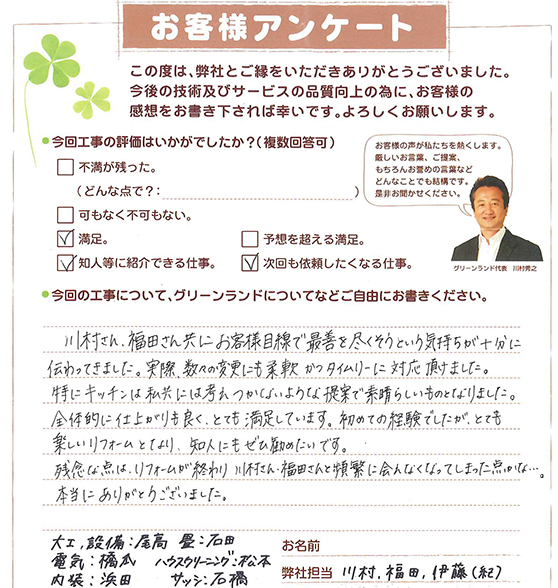 お客様アンケート
この度は、弊社とご縁をいただきありがとうございました。
今後の技術及びサービスの品質向上の為に、お客様の
感想をお書き下されば幸いです。よろしくお願いします。
今回工事の評価はいかがでしたか？(複数回答可)
不満が残った。
(どんな点で？: )
可もなく不可もない。
満足。
予想を超える満足。
知人等に紹介できる仕事。
次回も依頼したくなる仕事。
お客様の声が私たちを熱くします。
厳しいお言葉、ご提案、
もちろんお誉めの言葉など
どんなことでも結構です。
是非お聞かせください。
グリーンランド代表 川村秀之
今回の工事について、グリーンランドについてなどご自由にお書きください。
川村さん、福田さん共にお客様目線で最善を尽くそうという気持ちが十分に
伝わってきました。実際、数々の変更にも柔軟かつタイムリーに対応頂けました。
特にキッチンは私共には考えつかないような提案で素晴らしいものとなりました。
全体的に仕上がりも良く、とても満足しています。初めての経験でしたが、とても
楽しいリフォームとなり、知人にもぜひ勧めたいです。
残念な点は、リフォームが終わり川村さん・福田さんと頻繁に会えなくなってしまった点かな…。
本当にありがとうございました。
大工,設備:尾高 畳:石田
電気:橋本 ハウスクリーニング:松本
内装:浜田 サッシ:石橋
お名前
弊社担当 川村,福田,伊藤(紀)